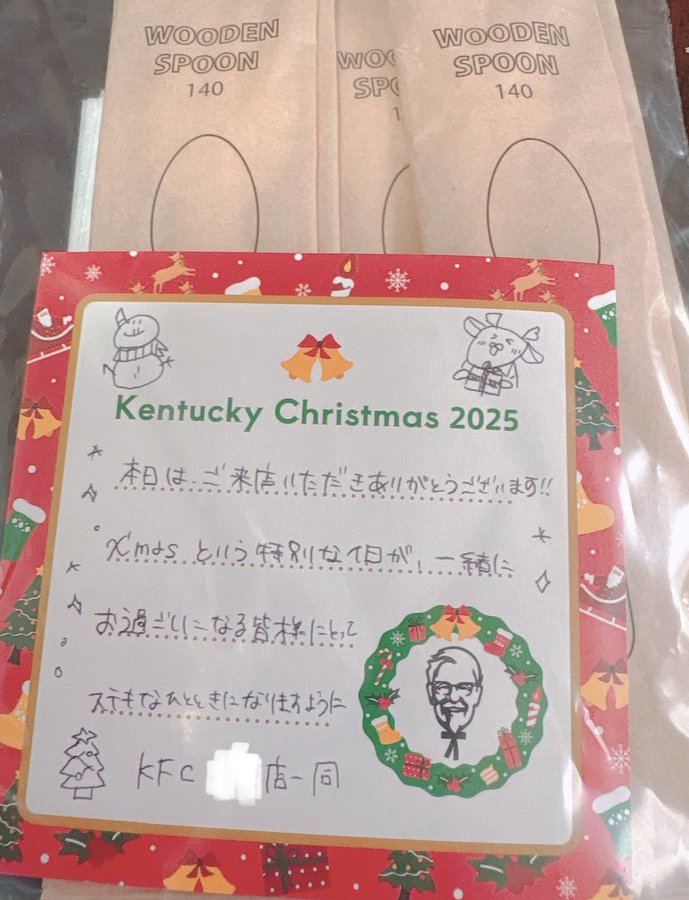 WOODEN
SPOON
140
WOO
SP
1
WOODEN
SPOON
140
Kentucky Christmas 2025
本日は、ご来店いただきありがとうございます!!
X'mas という特別な1日が、一緒に
お過ごしになる皆様にとって
ステキなひとときになりますように
KFC 店一同